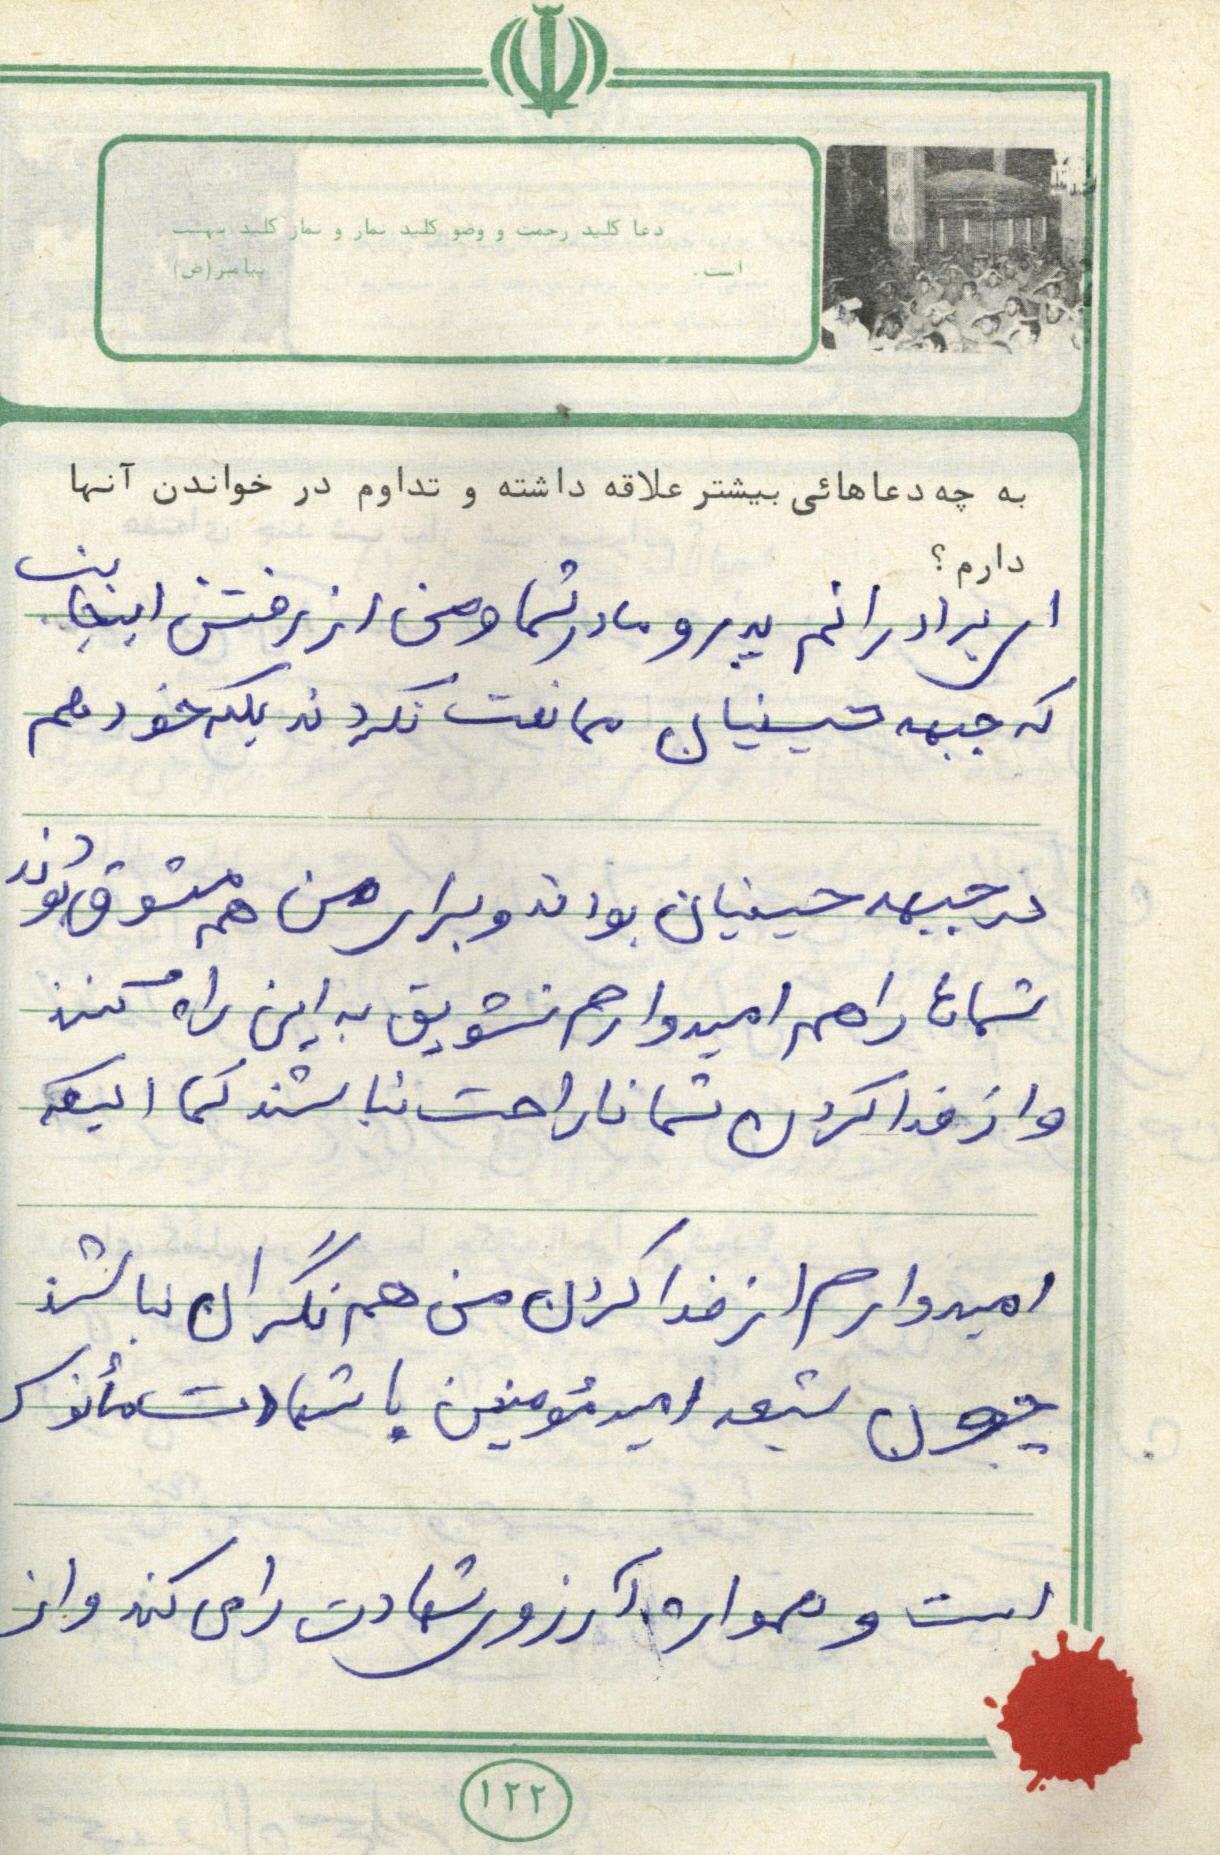 دعا کلید رحمت و وضو کلید نماز و نماز کلید بهشت
است.
پیامبر(ص)
به چه دعاهائی بیشتر علاقه داشته و تداوم در خواندن آنها
دارم؟
ای برادرانم پدر و مادر شما و من از رفتن اینجانب
که جبهه حسینیان ممانعت نکردند بلکه خود هم
در جبهه حسینیان بودند و برای من هم مشوق بودند
شماها را هم امیدوارم تشویق به این راه کنند
و از فدا کردن شما ناراحت نباشند کما اینکه
امیدوارم از فدا کردن من هم نگران نباشند
چون شیعه امیدمؤمنین با شهادت مأنوس
است و همواره آرزوی شهادت را می کند و از
۱۲۲